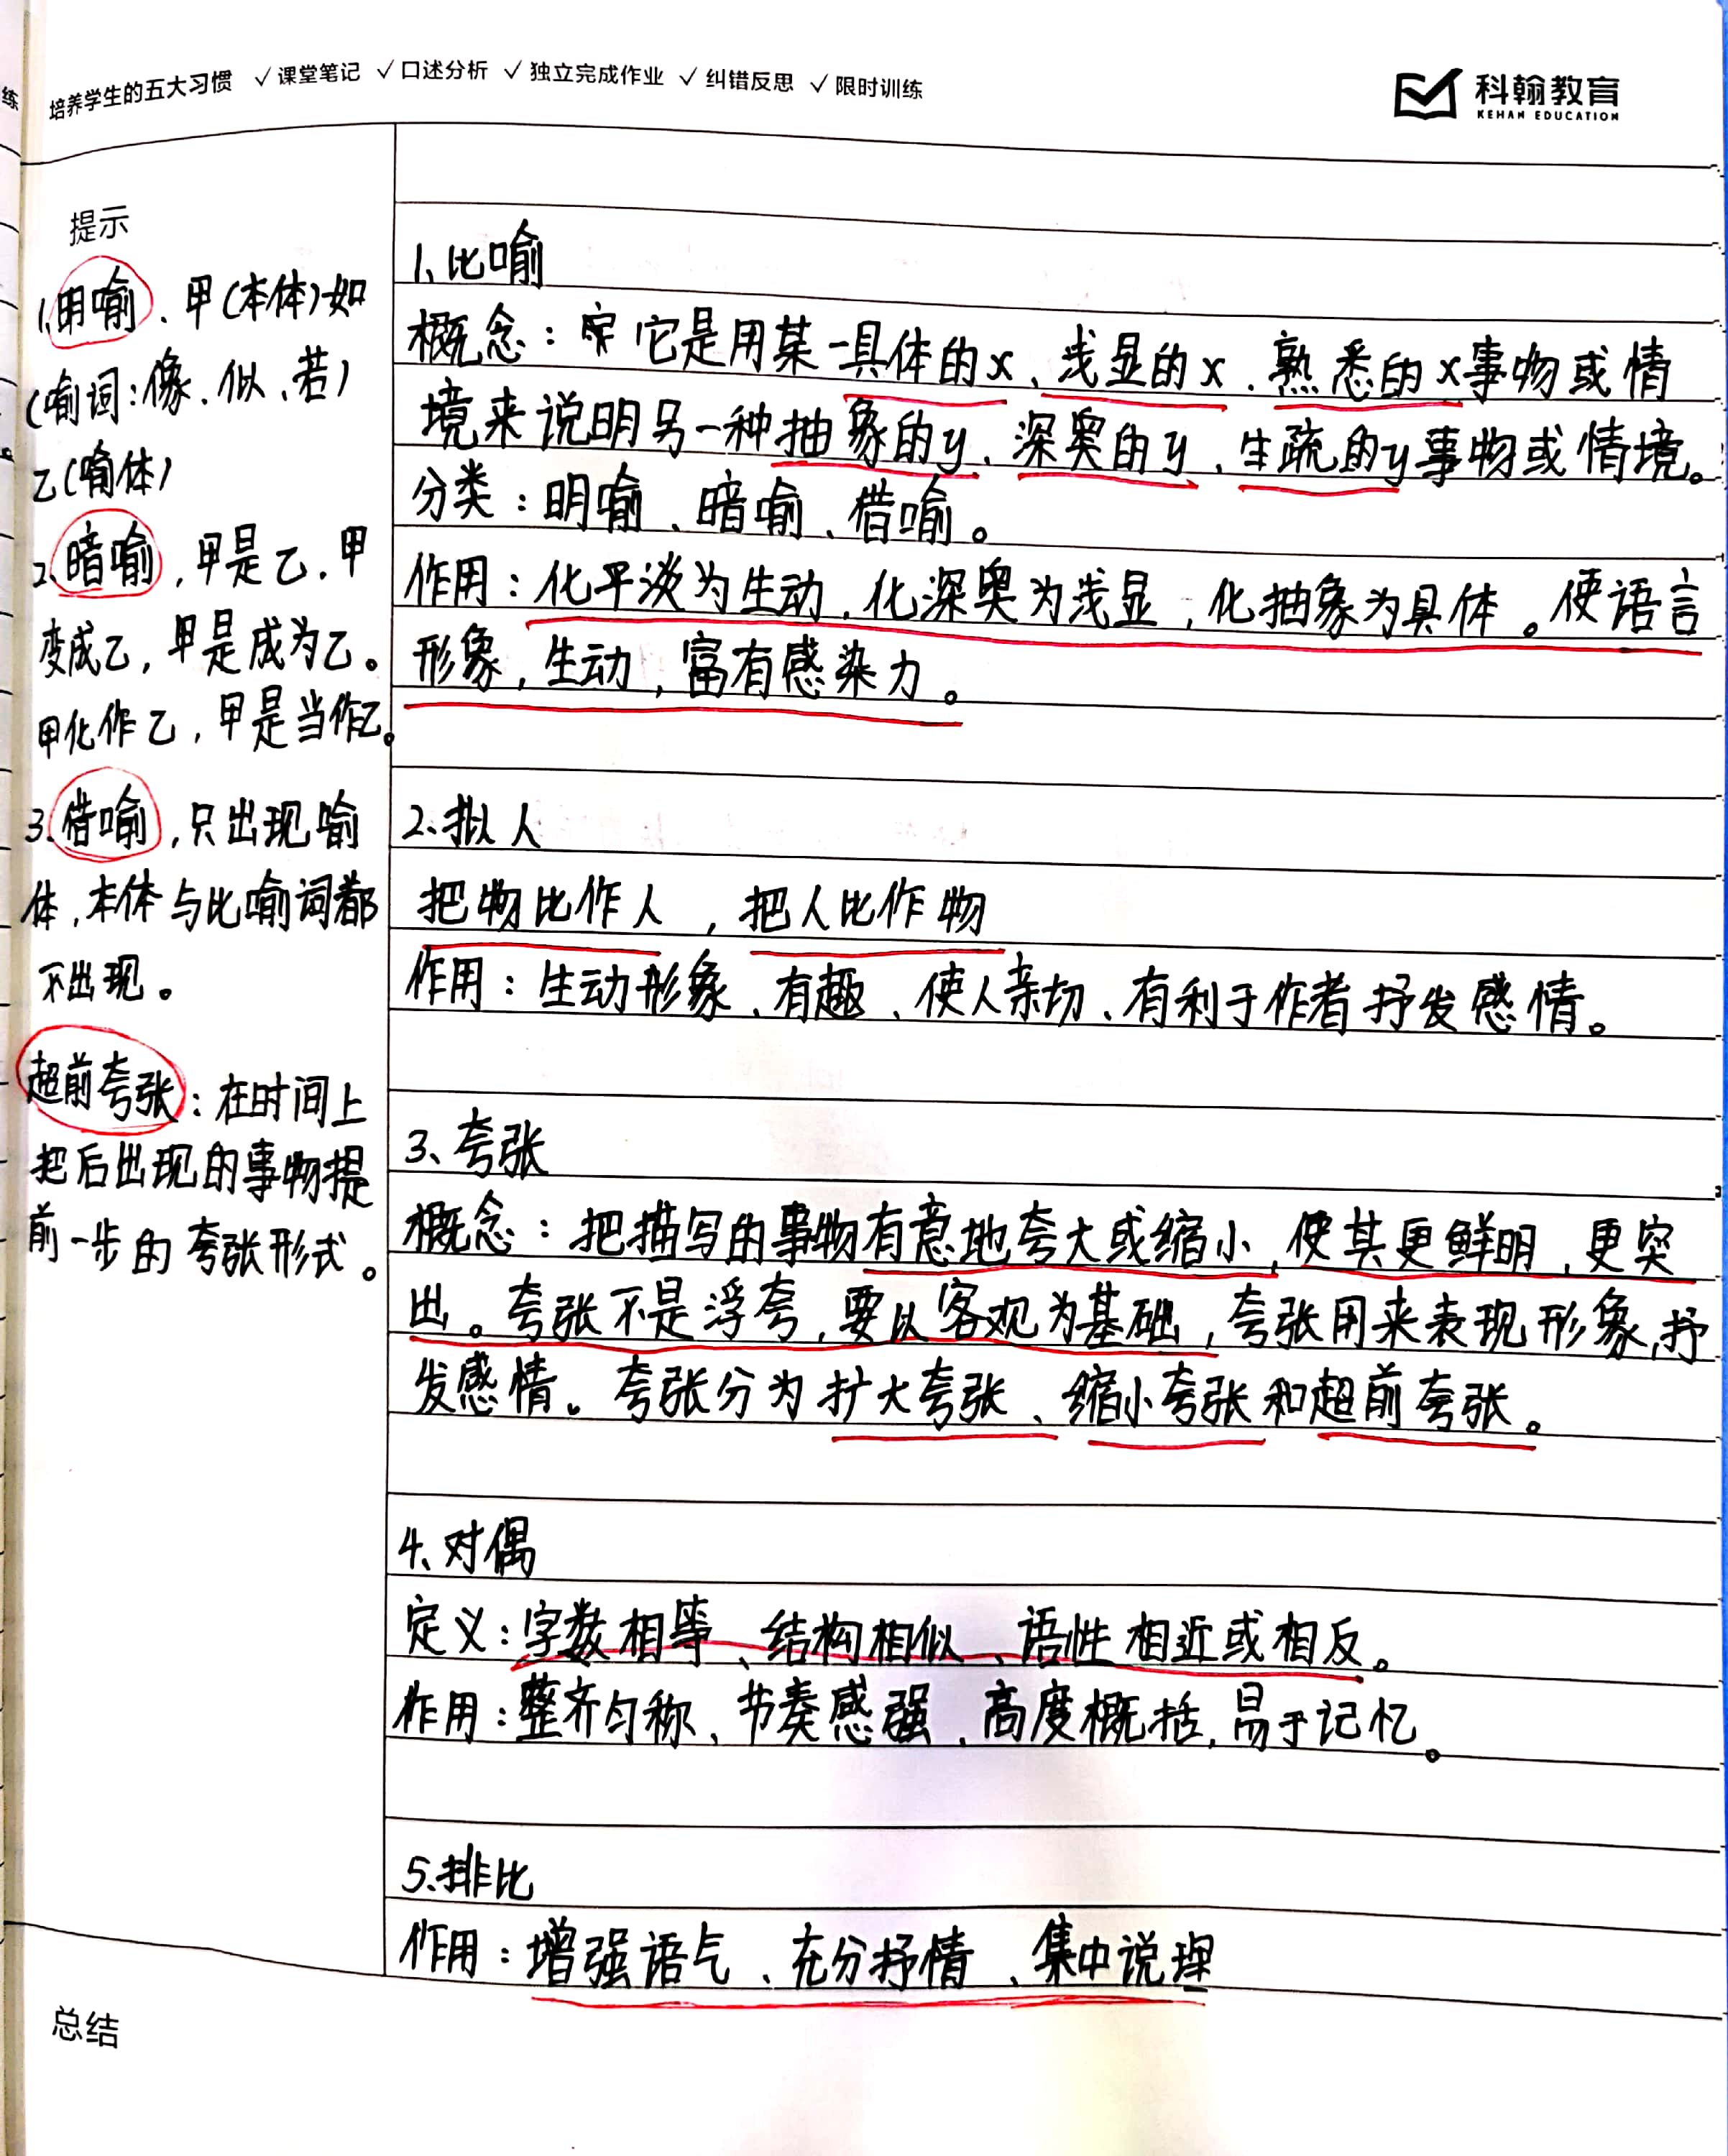 培养学生的五大习惯 ✓课堂笔记 ✓口述分析 ✓独立完成作业 ✓纠错反思 ✓限时训练
科翰教育
KEHAN EDUCATION
练
提示
1、明喻、甲(本体)如
(喻词:像、似、若)
乙(喻体)
2、暗喻,甲是乙.甲
变成乙,甲是成为乙。
甲化作乙,甲是当作乙。
3、借喻,只出现喻
体,本体与比喻词都
不出现。
超前夸张:在时间上
把后出现的事物提
前一步的夸张形式。
1、比喻
概念:它是用某一具体的x、浅显的x、熟悉的x事物或情
境来说明另一种抽象的y、深奥的y、生疏的y事物或情境。
分类:明喻、暗喻、借喻。
作用:化平淡为生动,化深奥为浅显,化抽象为具体。使语言
形象,生动,富有感染力。
2、拟人
把物比作人,把人比作物
作用:生动形象、有趣、使人亲切、有利于作者抒发感情。
3、夸张
概念:把描写的事物有意地夸大或缩小,使其更鲜明,更突
出。夸张不是浮夸,要以客观为基础,夸张用来表现形象,抒
发感情。夸张分为扩大夸张、缩小夸张和超前夸张。
4、对偶
定义:字数相等、结构相似、语性相近或相反。
作用:整齐匀称、节奏感强、高度概括,易于记忆。
5、排比
作用:增强语气、充分抒情、集中说理
总结